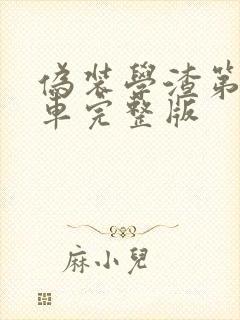 偽裝學渣第
車完整版
麻小兒